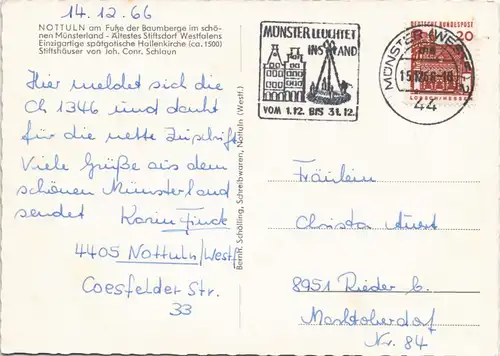 14.12.66
NOTTULN am Fuße der Baumberge im schö-
nen Münsterland - Ältestes Stiftsdorf Westfalens
Einzigartige spätgotische Hallenkirche (ca. 1500)
Stiftshäuser von Joh. Conr. Schlaun
Hier meldet sich die
Ch 1346 und dankt
für die nette Zuschrift
Viele Grüße aus dem
schönen Münsterland
sendet Karin Finck
4405 Nottuln/Westf.
Coesfelder Str.
33
Bernh. Schölling, Schreibwaren, Nottuln (Westf.)
MÜNSTER LEUCHTET
INS LAND
VOM 1.12. BIS 31.12.
MÜNSTER (WESTF) 2
44
DEUTSCHE BUNDESPOST
20
LORSCH/HESSEN
Fräulein
Christa
8951 Rieder b.
Marktoberdorf
Nr. 84